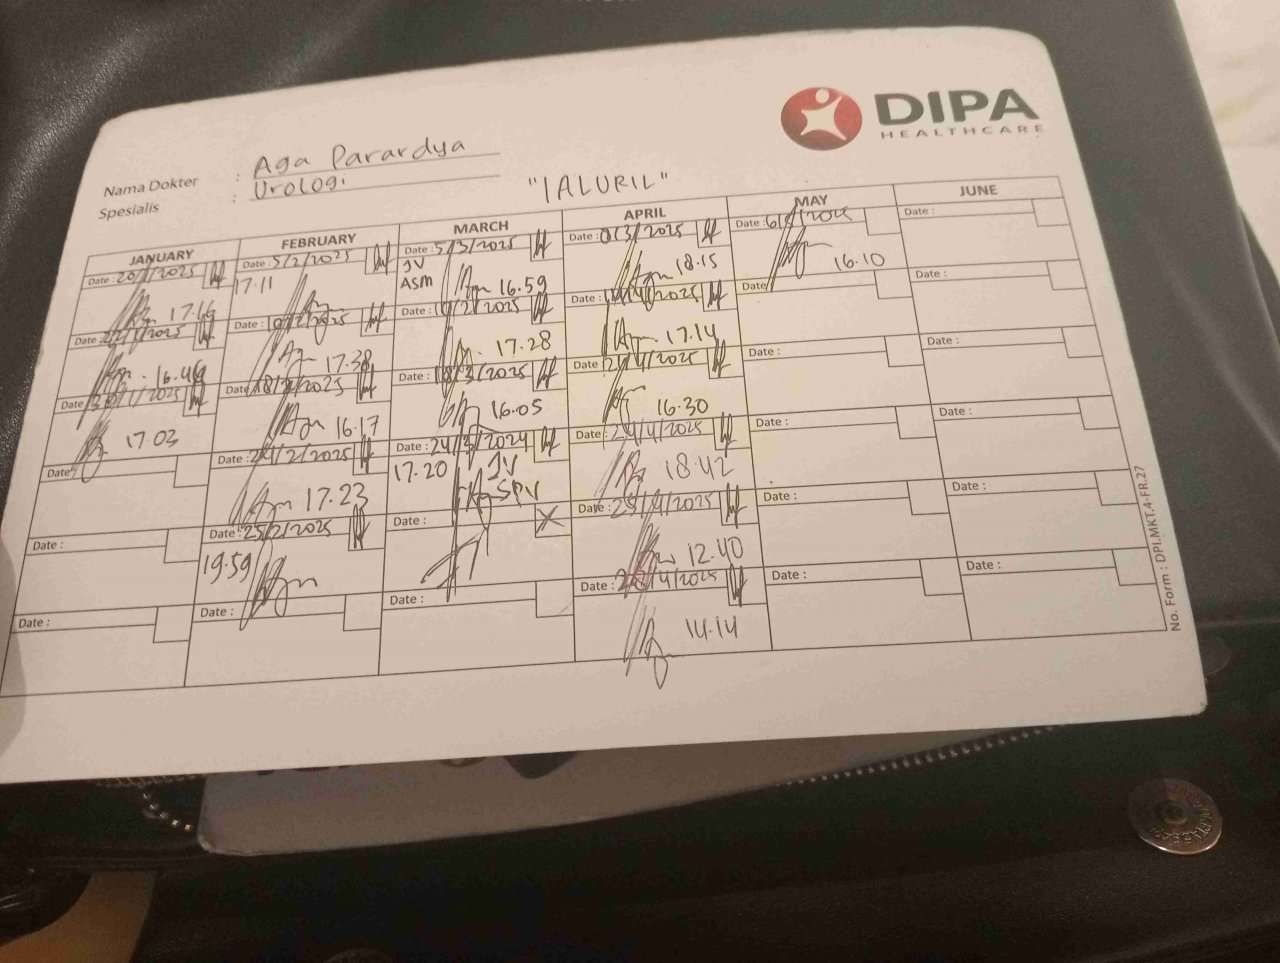 DIPA
HEALTHCARE
Nama Dokter : Aga Parardya
Spesialis : Urologi
"IALURIL"
JANUARY
Date : 20/1/2025
Date : /1/2025
16.49
Date : 30/1/2025
17.03
Date :
Date :
Date :
FEBRUARY
Date : 5/2/2025
17.11
Date : 10/2/2025
17.38
Date : 18/2/2025
16.17
Date : 24/2/2025
17.23
Date : 25/2/2025
19.59
Date :
MARCH
Date : 5/3/2025
JV
ASM
16.59
Date : /2025
17.28
Date : 18/3/2025
16.05
Date : 24/3/2024
17.20
JV
SPV
Date :
Date :
APRIL
Date : /3/2025
18.15
Date : /4/2025
17.14
Date : /4/2025
16.30
Date : 24/4/2025
18.42
Date : 25/4/2025
12.40
Date : /4/2025
14.14
MAY
Date : 6/5/2025
16.10
Date :
Date :
Date :
Date :
Date :
JUNE
Date :
Date :
Date :
Date :
Date :
Date :
No. Form : DPI.MKT.4-FR.27